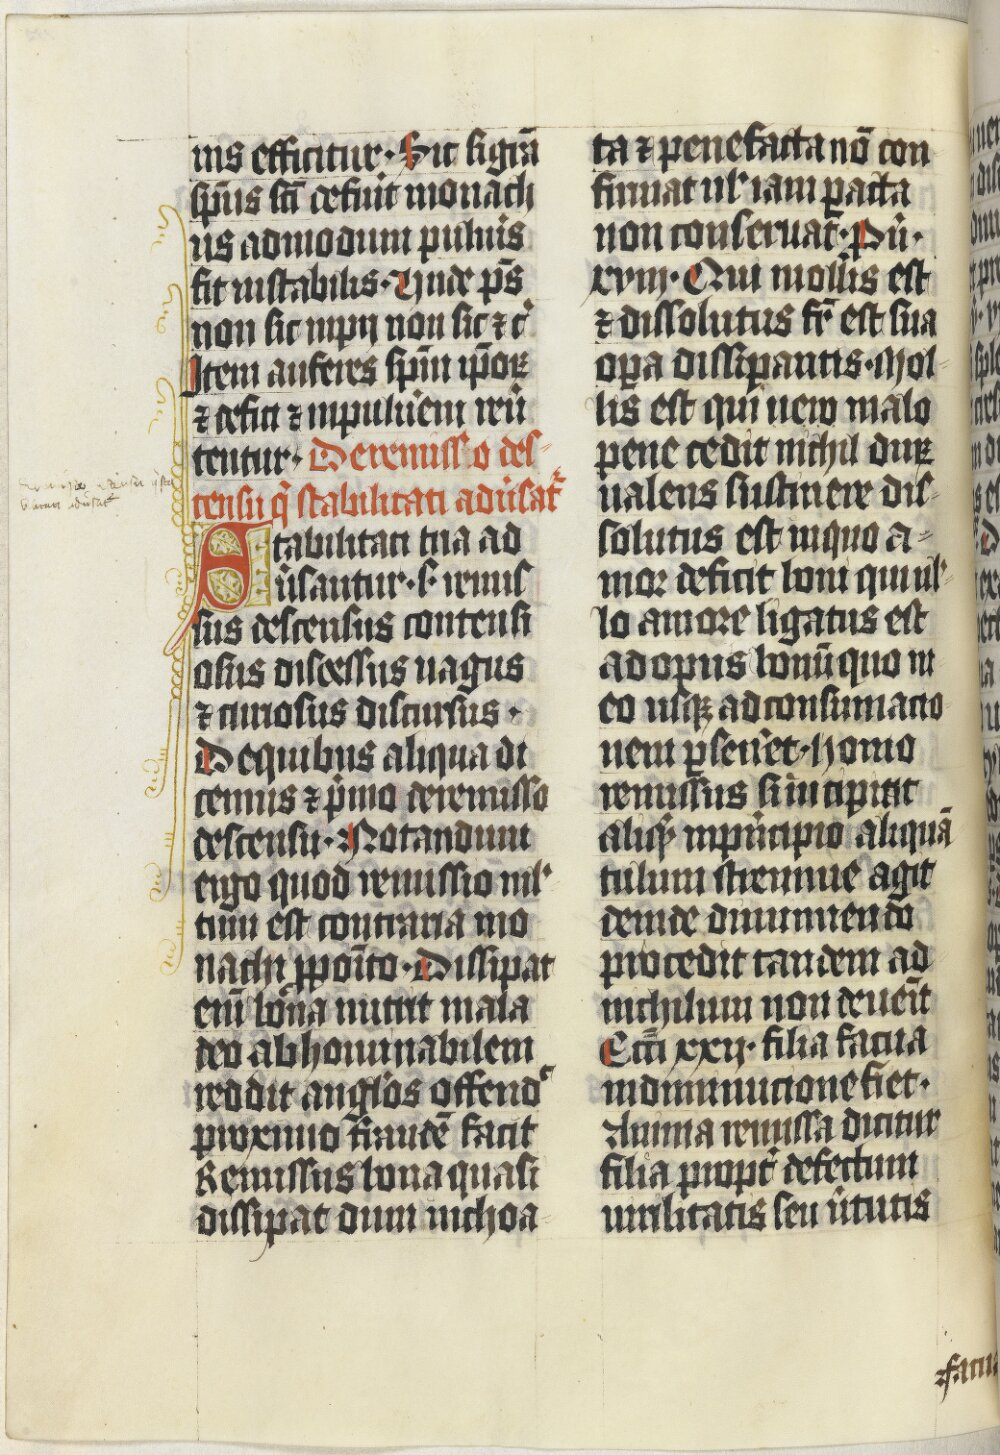 uis efficitur· Sic si grā
sp̄us sc̄i defuit monach
us ad modum pulu̾is
fit instabilis· Unde ps̄
non sic impij non sic ⁊ c̾
Item auferes sp̄m ip̄oꝝ
⁊ defici ⁊ in pulu̾em reu̾
tentur· De remisso des-
censu q̄ stabilitati adu̾sat᷑
Stabilitati tria ad
u̾santur· s· remis
sus descensus contensi
osus discessus uagus
⁊ curiosus discursus·
De quibus aliqua di
cemus ⁊ p̾mo de remisso
descensu· Notandum
ergo quod remissio ml̾
tum est contraria mo
nachi ꝓpoīto· Dissipat
em̄ bona nutrit mala
deo abhominabilem
reddit angl̾os offend̾
proximo fraudē facit
Remissus bona quasi
dissipat dum inchoa
ta ⁊ pene facta nō con
sumat ul̾ iam ꝑacta
non conseruat· Pu̾·
xviij· Qui mollis est
⁊ dissolutus fr̄ est sua
oꝑa dissipantis· Mol-
lis est qui uero malo
pene cedit nichil duꝝ
ualens sustinere dis-
solutus est in quo a-
mor deficit boni qui ul̾-
lo amore ligatus est
ad opus bonū quo in
eo usqꝫ ad consumacio
nem ꝑseu̾et· Homo
remissus si incipiat
aliq̾ in pn̾cipio aliquā
tulum strenue agit
deinde diminuendo
procedit tandem ad
nichilum non deuen̾it
Eccī xxij· filia fatua
in diminucione fiet·
Anima remissa dicitur
filia propt̾ defectum
uirilitatis seu u̾tutis
⁊ fatua